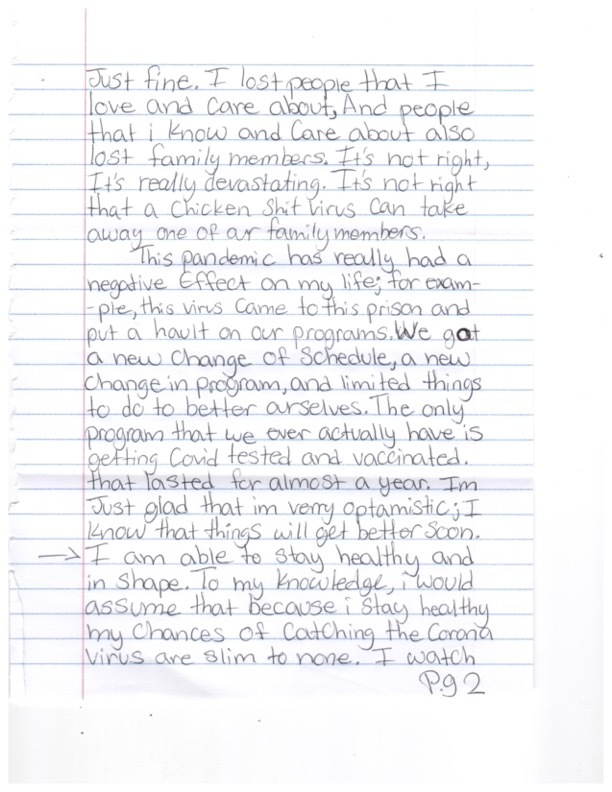 Just fine. I lost people that I
love and care about, And people
that i know and care about also
lost family members. It's not right,
It's really devastating. It's not right
that a chicken shit virus can take
away one of our family members.
This pandemic has really had a
negative Effect on my life; for exam-
-ple, this virus came to this prison and
put a hault on our programs. We got
a new change of schedule, a new
change in program, and limited things
to do to better ourselves. The only
program that we ever actually have is
getting Covid tested and vaccinated.
that lasted for almost a year. Im
Just glad that im verry optamistic; I
know that things will get better soon.
→ I am able to stay healthy and
in shape. To my knowledge, i would
assume that because i stay healthy
my chances of catching the Corona
virus are slim to none. I watch
P.g 2